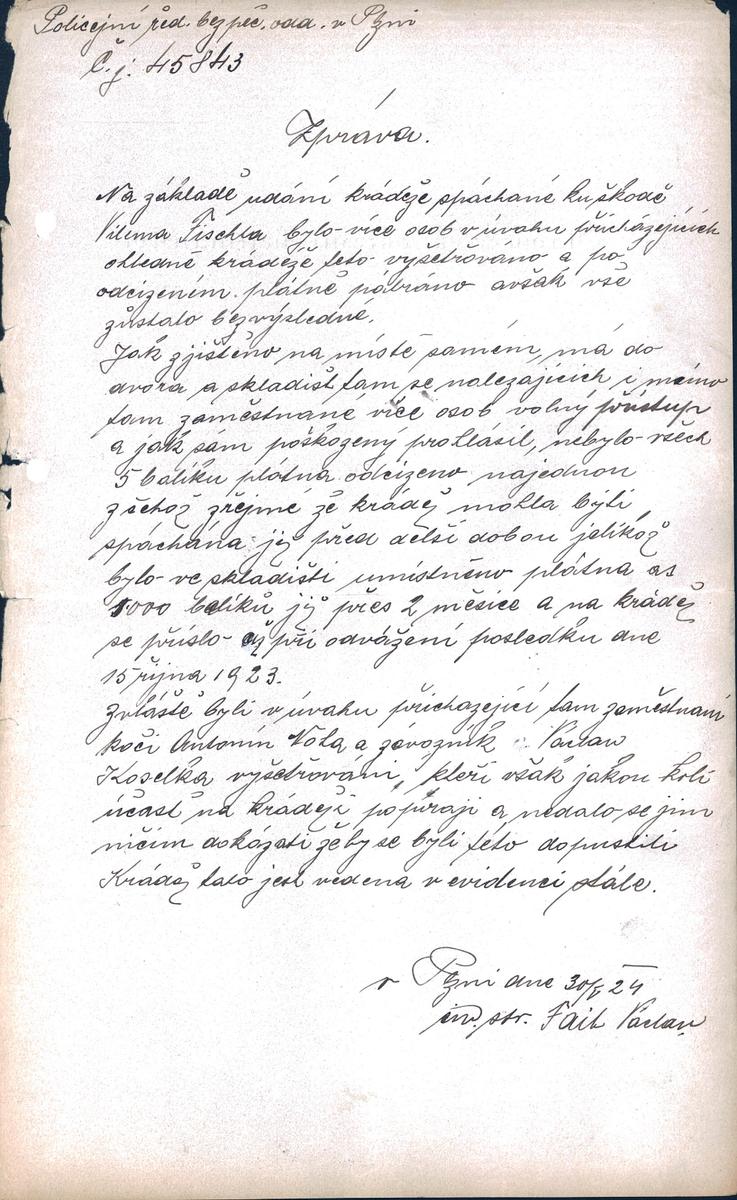 Policejní řed. bezpeč. odd. v Plzni
Č. j. 45843
Zpráva.
Na základě udání krádeže spáchané ku škodě
Viléma Fischla bylo více osob v úvahu přicházejících
ohledně krádeže této vyšetřováno a po
odcizeném plátně pátráno avšak vše
zůstalo bezvýsledné.
Jak zjištěno na místě samém, má do
dvora a skladišť tam se nalezajících i mimo
tam zaměstnané více osob volný přístup
a jak sám poškozený prohlásil, nebylo všech
5 balíku plátna odcizeno najednou
z čehož zřejmé že krádež mohla býti
spáchána již před delší dobou jelikož
bylo ve skladišti umístněno plátna as
1000 balíků již přes 2 měsíce a na krádež
se přišlo až při odvážení posledku dne
15 října 1923.
Zvláště byli v úvahu přicházející tam zaměstnaní
kočí Antonín Nota a závozník Václav
Koselka vyšetřováni, kteří však jakou koli
účast na krádeži popírají a nedalo se jim
ničím dokázati žeby se byli této dopustili
Krádež tato jest vedena v evidenci stále.
v Plzni dne 30/I 24
str. Fait Václav